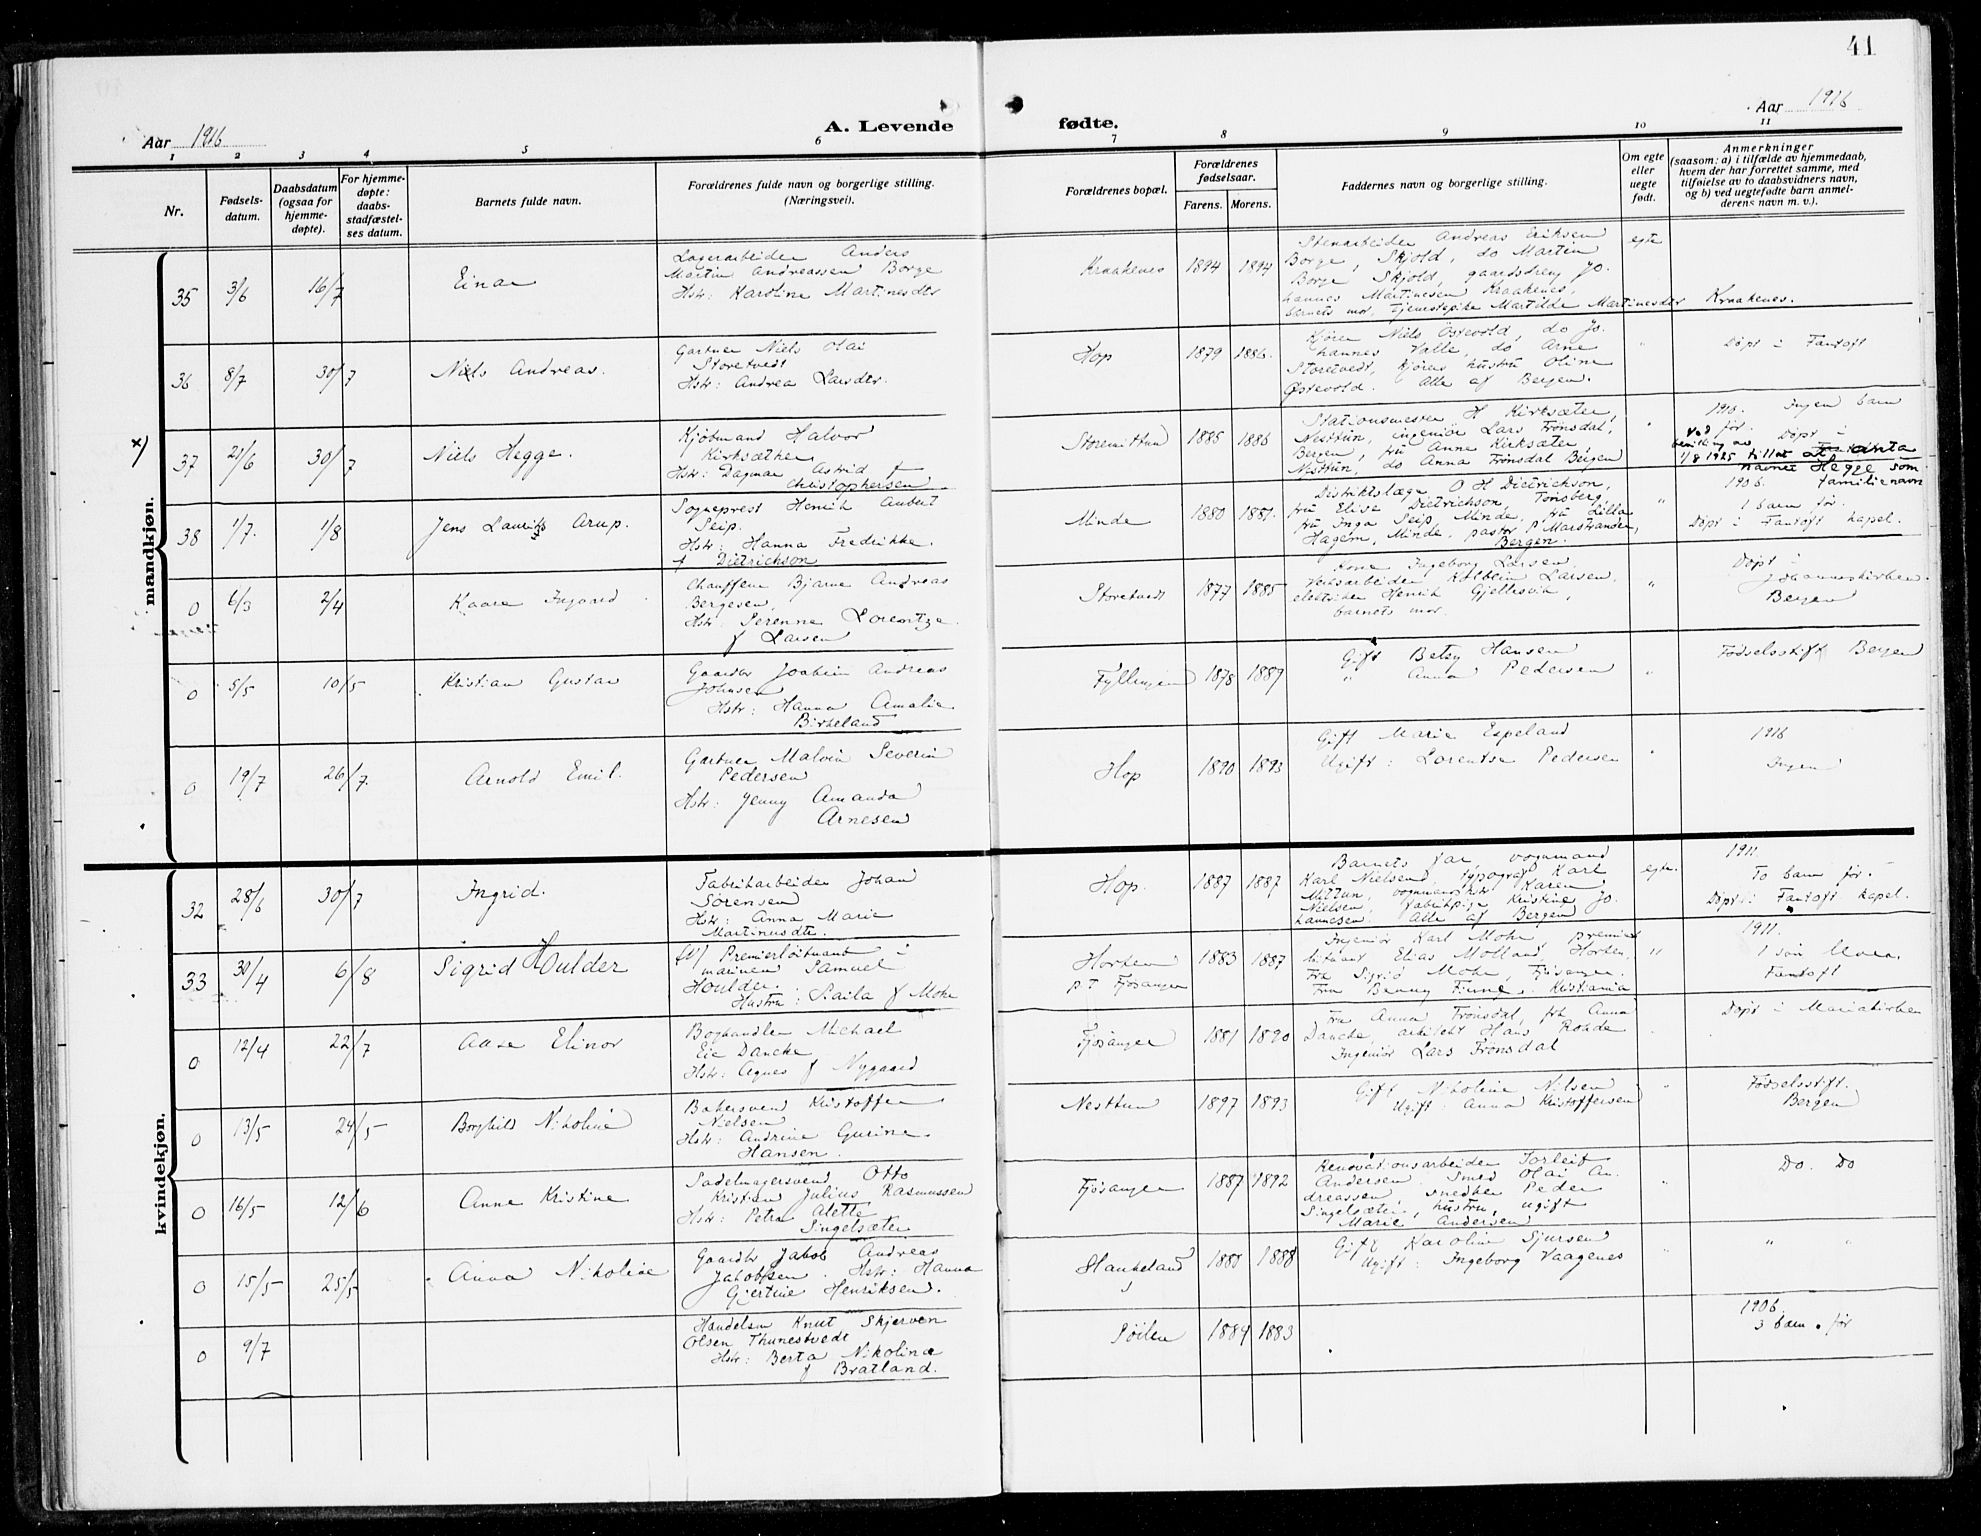 41
Aar 1916
A. Levende
fødte.
Aar 1916
1 2 3 4 5 6 7 8 9 10 11
Nr.
Fødsels-
datum.
Daabsdatum
(ogsaa for
hjemme-
døpte).
For hjemme-
døpte:
daabs-
stadfæstel-
ses datum.
Barnets fulde navn.
Forældrenes fulde navn og borgerlige stilling.
(Næringsvei).
Forældrenes bopæl.
Forældrenes
fødselsaar.
Farens. Morens.
Faddernes navn og borgerlige stilling.
Om egte
eller
uegte
født.
Anmerkninger
(saasom: a) i tilfælde av hjemmedaab,
hvem der har forrettet samme, med
tilføielse av to daabsvidners navn,
og b) ved uegtefødte barn anmel-
derens navn m. v.).
mandkjøn.
35 3/6 16/7 Einar
Lagerarbeider Anders
Martin Andreassen Borge
Hstr: Karoline Martinesdtr
Kraakenes 1894 1894
Stenarbeider Andreas Eriksen
Borge, Skjold, do Martin
Borge, Skjold, gaardsdreng Jo-
hannes Martinesen Kraakenes,
barnets mor, tjenestepike Martilde Martinesdtr Kraakenes.
egte
36 8/7 30/7 Niels Andreas.
Gartner Niels Olai
Storetvedt
Hstr: Andrea Larsdtr.
Hop 1879 1886.
Kjører Niels Østevold, do Jo-
hannes Valle, do Arne
Storetvedt, kjørers hustru Oline
Østevold. Alle af Bergen.
"
Døpt i Fantoft
x)
37 21/6 30/7 Niels Hegge.
Kjøbmand Halvor
Kirksæther
Hstr: Dagmar Astrid f
Christophersen
Storemittun 1885 1886
Stationsmester H Kirksæter,
Nesttun, ingeniør Lars Frönsdal,
Bergen, fru Anne Kirksæter
Nesttun, do Anna Frönsdal Bergen
"
1910. Ingen barn
før. Døpt i
Ved
bevilling av
1/8 1925 tillat at anta
navnet Hegge som
familienavn
38 1/7. 1/8 Jens Laurits Arup.
Sogneprest Henrik Aubert
Seip.
Hstr: Hanna Fredrikke.
f Dietrichson
Minde 1880 1881.
Distriktslæge O H Dietrichson,
fru Elise Dietrichson, Tønsberg,
fru Inga Seip Minde, fru Lilla
Hagem, Minde, pastor P Marstrander,
Bergen.
"
1906.
1 barn før.
Døpt i Fantoft kapel.
0 6/3 2/4 Kaare Ingvard
Chauffeur Bjarne Andreas
Bergesen,
Hstr: Serenne Lorentze.
f Larsen
Storetvedt 1877 1885
Kone Ingeborg Larsen,
Kolbein Larsen,
elektriker Henrik Gjellesvik,
barnets mor.
"
Døpt i
Johanneskirken.
Bergen
0 5/5 10/5 Kristian Gustav
Gaardbr Joakim Andreas
Johnsen
Hstr: Hanna Amalie
Birkeland
Fyllingen 1878 1889
Gift Betsy Hansen
" Anna Pedersen
"
Fødselsstift Bergen
0 19/7 26/7. Arnold Emil.
Gartner Malvin Severin
Pedersen
Hstr: Jenny Amanda
Arnesen
Hop 1890 1893
Gift Marie Espeland
Ugift: Lorentse Pedersen
"
1916
Ingen
kvindekjøn.
32 28/6 30/7 Ingrid.
Fabrikarbeider Johan
Sörensen
Hstr: Anna Marie
Martinusdtr.
Hop. 1887 1887
Barnets far, vognmand
Karl Nielsen, typograf Karl
Mittun, vognmands hstr Karen
Nielsen, fabrikpige Kristine Jo-
hannesen. Alle af Bergen
egte.
1911.
To barn før.
Døpt i Fantoft kapel.
33 30/4 6/8 Sigrid Houlder
Premierløitnant i
marinen Samuel
Houlder.
Hustru: Laila f Mohr
Horten
p.t. Fjøsanger
1883 1887
Ingeniør Karl Mohr, premier
løitnant Elias Molland, Horten,
Fru Sigrid Mohr, Fjøsanger.
Fru Benny Finne, Kristiania
"
1911.
1 søn
Fantoft
0 12/4 22/7 Aase Elinor
Boghandler Michael
Eie Dancke
Hstr: Agnes f Nygaard
Fjøsanger 1881 1890
Fru Anna Frönsdal, frk Anna
Dancke, arkitekt Hans Rohde
Ingeniør Lars Frönsdal
Døpt i Mariakirken
0 13/5 24/5 Borghild Nikoline
Bakersvend Kristoffer
Nielsen
Hstr: Andrine Gurine
Hansen.
Nesttun 1897 1893
Gift Nikoline Nilsen
Ugift: Anna Kristoffersen
"
Fødselsstift.
Bergen
0 16/5 12/6 Anne Kristine
Sadelmagersvend Otto
Kristian Julius Rasmussen
Hstr: Petra Alette
Singelsæter
Fjøsanger 1887 1892
Renovationsarbeider Torleif
Andersen. Smed Olai An-
dreassen, snedker Peder
Singelsæter, hustru, ugift
Marie Andersen
Do. Do
0 15/5 25/5 Anna Nikoline
Gaardbr Jakob Andreas
Jakobsen. Hstr: Hanna
Gjertine Henriksen.
Haukeland 1888
Gift Karoline Sjursen
Ugift: Ingeborg Vaagenes
" " "
0 9/7
Handelsm Knut Skjerven
Olsen Thunestvedt
Hstr: Berta Nikoline
f Bratland.
Søilen 1884 1883
1906.
3 barn. før